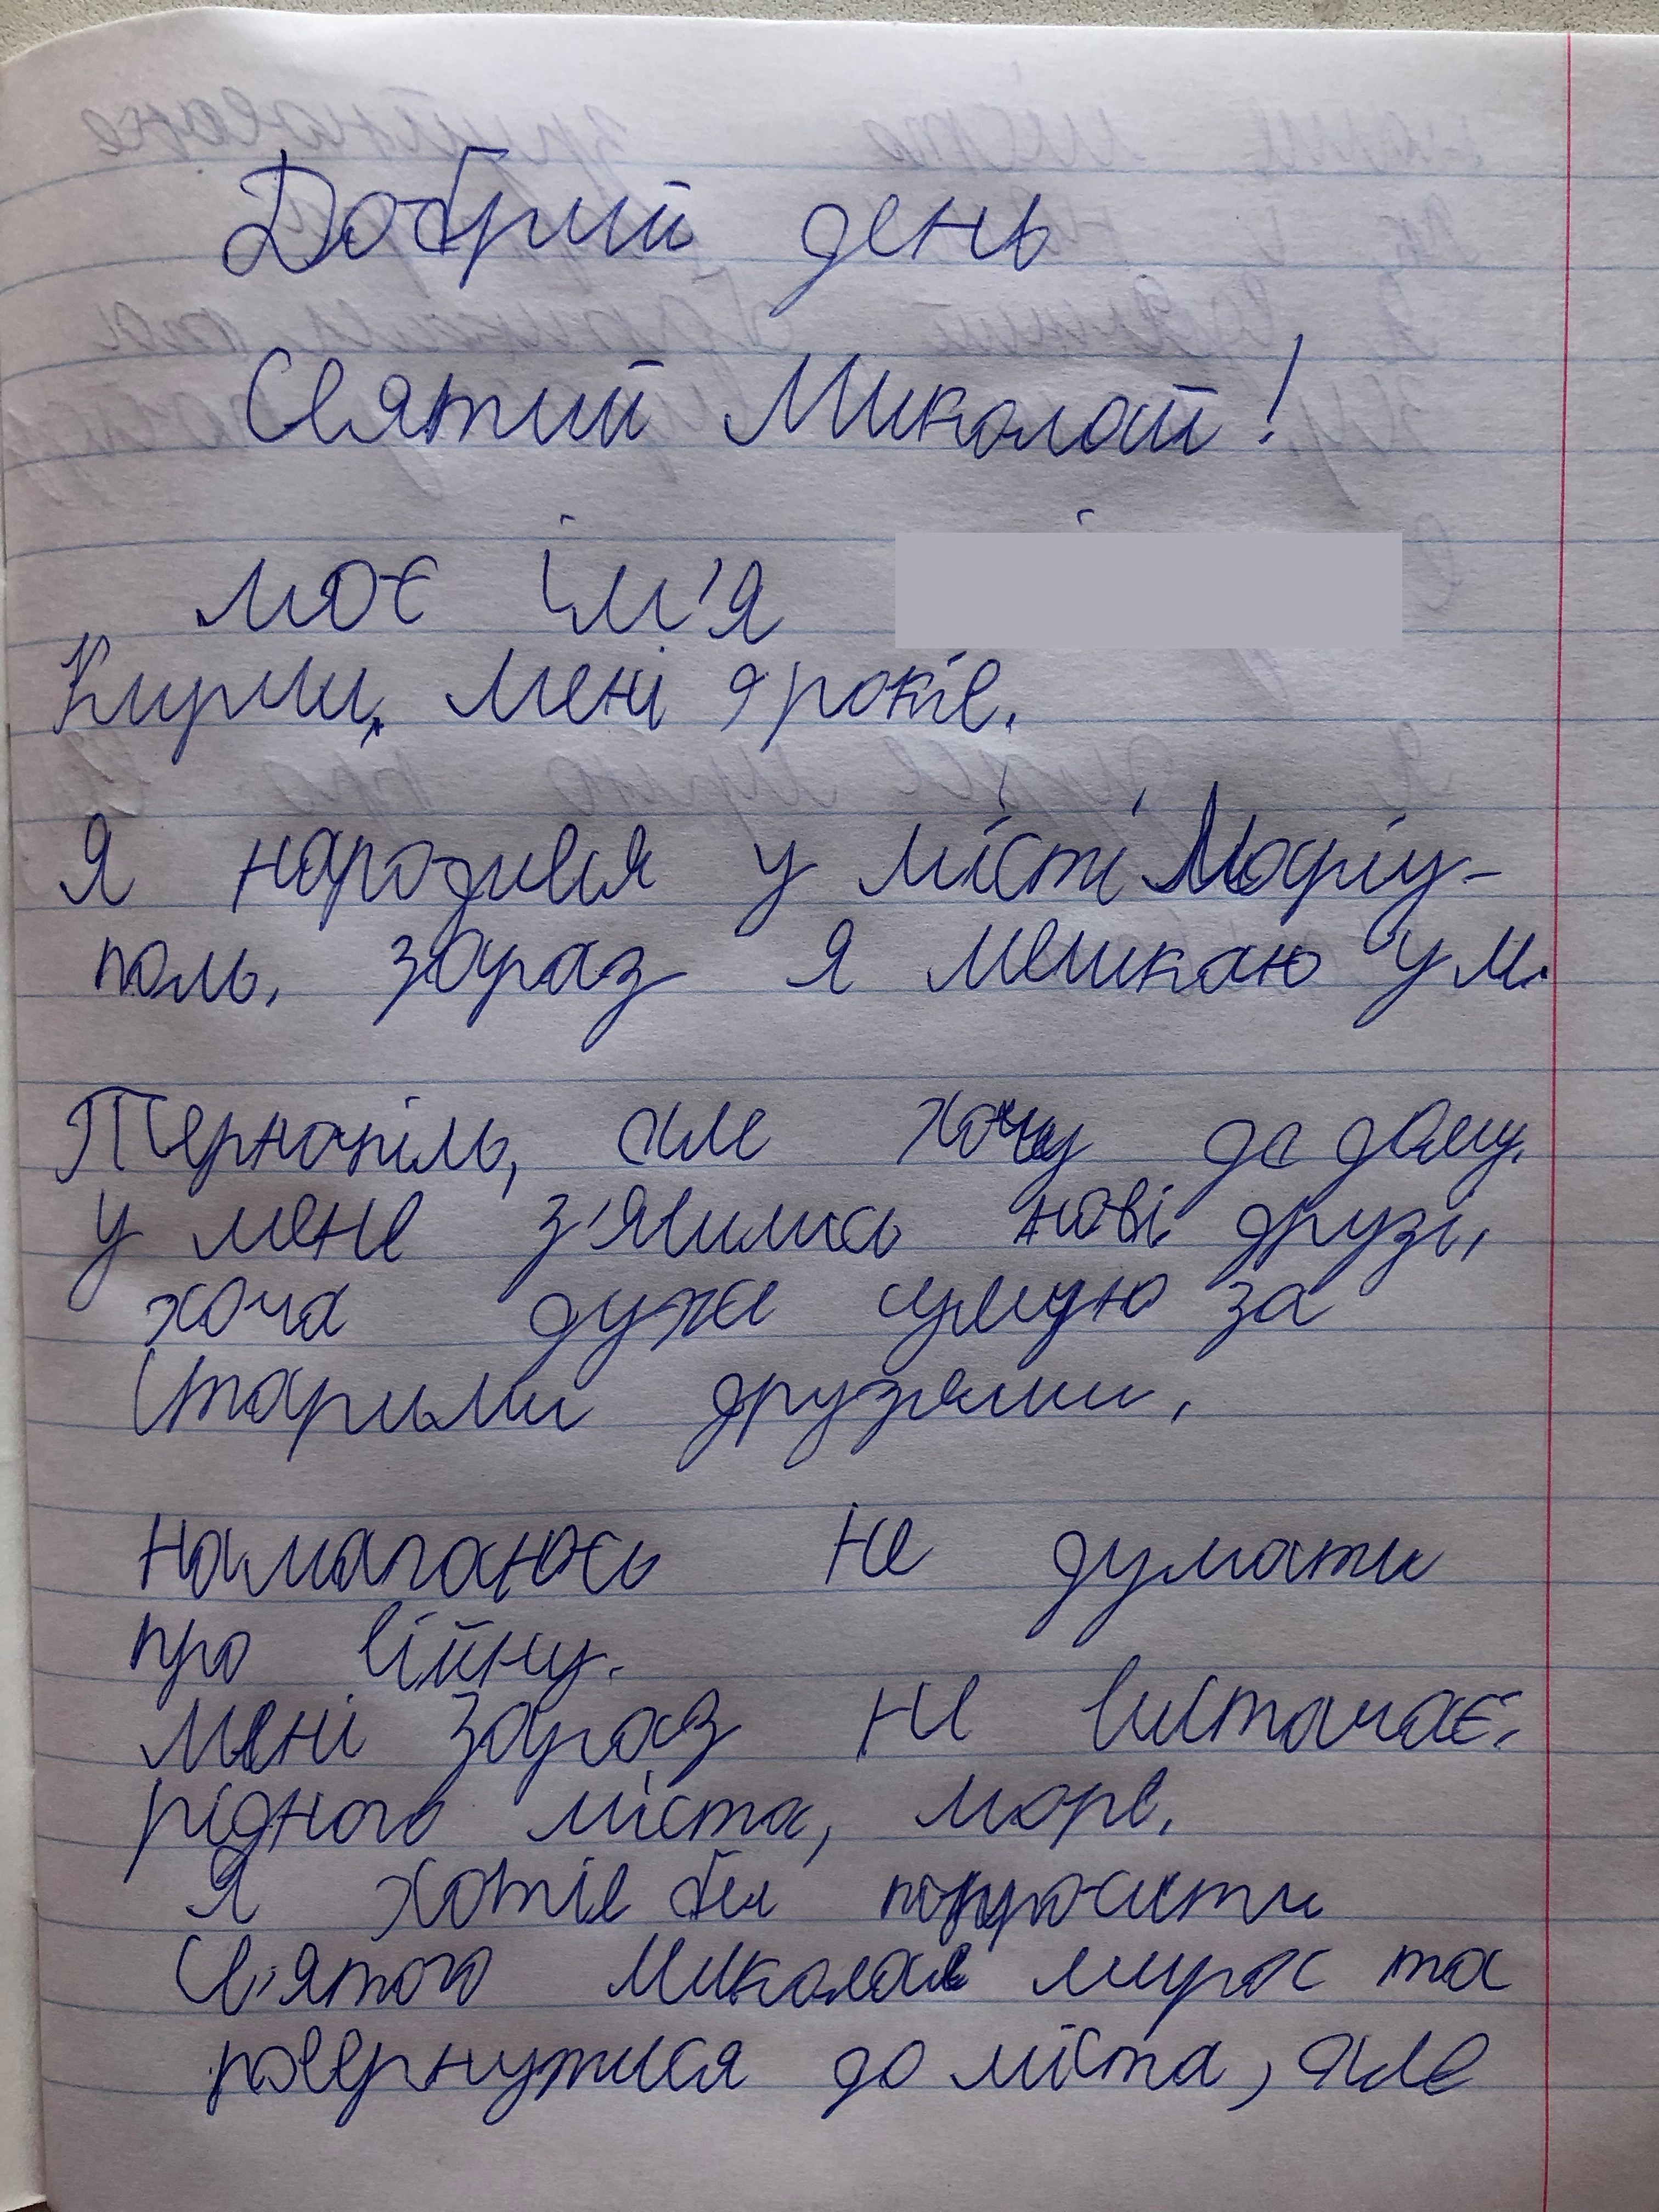 Добрий день
Святий Миколай!
моє ім'я
Кирил, мені 9 років.
Я народився у місті Маріу-
поль. зараз я мешкаю у м.
Тернопіль, але хочу до дому.
у мене з'явились нові друзі,
хоча дуже сумую за
старими друзями.
Намагаюсь не думати
про війну.
мені зараз не вистачає
рідного міста, моря.
Я хотів би попросити
Св'ятого Миколая мира та
повернутися до міста, але